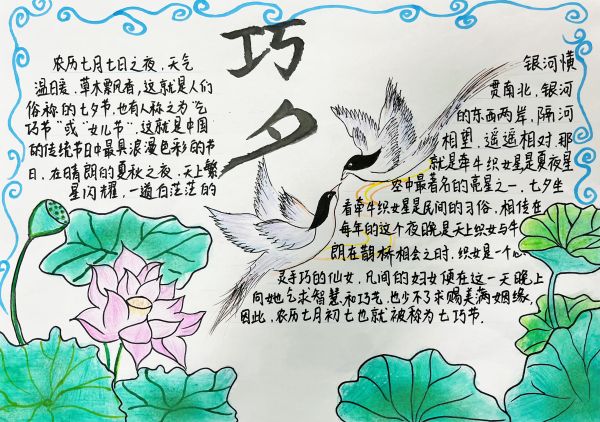 巧夕
农历七月七日之夜，天气
温日暖，草木飘香，这就是人们
俗称的七夕节，也有人称之为“乞
巧节”或“女儿节”，这就是中国
的传统节日中最具浪漫色彩的节
日，在晴朗的夏秋之夜，天上繁
星闪耀，一道白茫茫的
银河横
贯南北，银河
的东西两岸，隔河
相望，遥遥相对，那
就是牵牛织女星是夏夜星
空中最著名的亮星之一，七夕坐
看牵牛织女星是民间的习俗，相传在
每年的这个夜晚是天上织女与牛
朗在鹊桥相会之时，织女是一个心
灵手巧的仙女，凡间的妇女便在这一天晚上
向她乞求智慧和巧艺，也少不了求赐美满姻缘，
因此，农历七月初七也就被称为七巧节.